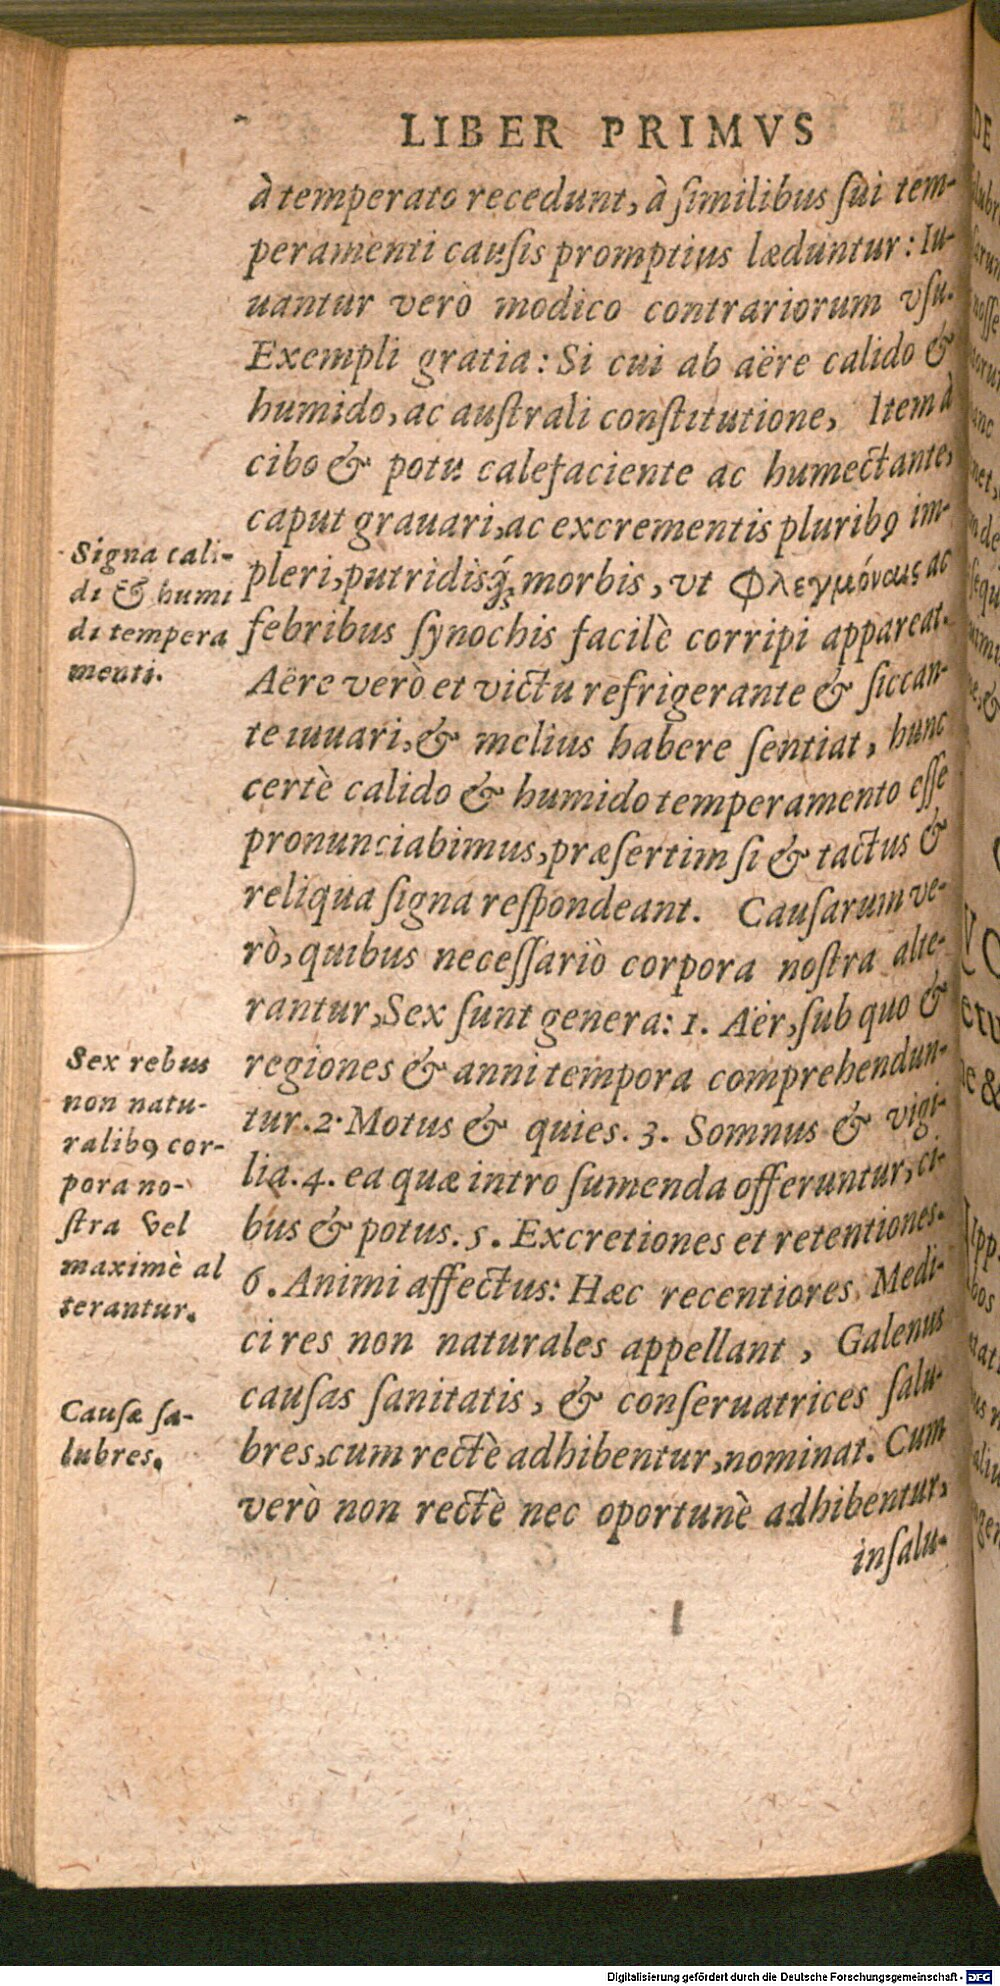 LIBER PRIMVS
à temperato recedunt, à ſimilibus ſui tem-
peramenti cauſis promptius læduntur: Iu-
uantur verò modico contrariorum vſu.
Exempli gratia: Si cui ab aëre calido &
humido, ac auſtrali conſtitutione, Item à
cibo & potu calefaciente ac humectante,
caput grauari, ac excrementis pluribꝰ im-
pleri, putridisq́; morbis, vt Φλεγμόναις ac
febribus ſynochis facilè corripi appareat.
Aëre verò et victu refrigerante & ſiccan-
te iuuari, & melius habere ſentiat, hunc
certè calido & humido temperamento eſſe
pronunciabimus, præſertim ſi & tactus &
reliqua ſigna reſpondeant. Cauſarum ve-
rò, quibus neceſſariò corpora noſtra alte-
rantur, Sex ſunt genera: 1. Aër, ſub quo &
regiones & anni tempora comprehendun-
tur. 2. Motus & quies. 3. Somnus & vigi-
lia. 4. ea quæ intro ſumenda offeruntur, ci-
bus & potus. 5. Excretiones et retentiones.
6. Animi affectus: Hæc recentiores Medi-
ci res non naturales appellant, Galenus
cauſas ſanitatis, & conſeruatrices ſalu-
bres, cum rectè adhibentur, nominat. Cum
verò non rectè nec oportunè adhibentur,
inſalu-
Signa cali-
di & humi
di tempera
menti.
Sex rebus
non natu-
ralibꝰ cor-
pora no-
ſtra vel
maximè al
terantur.
Cauſæ ſa-
lubres.
Digitalisierung gefördert durch die Deutsche Forschungsgemeinschaft - DFG